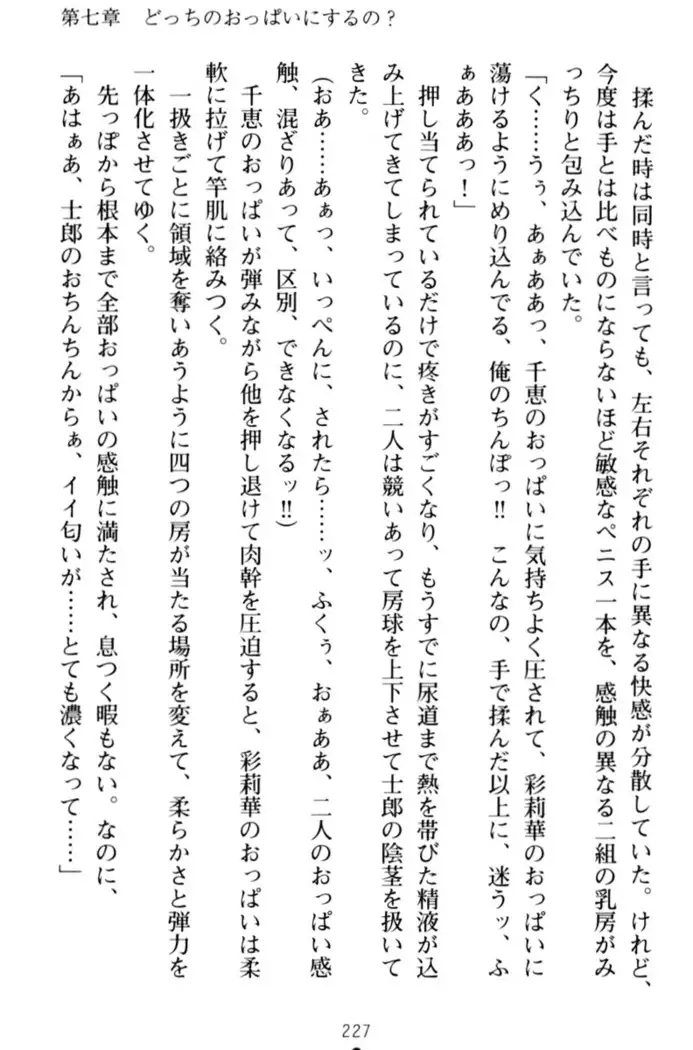 第七章　どっちのおっぱいにするの？
　揉んだ時は同時と言っても、左右それぞれの手に異なる快感が分散していた。けれど、
今度は手とは比べものにならないほど敏感なペニス一本を、感触の異なる二組の乳房がみ
っちりと包み込んでいた。
「く……うぅ、あぁああっ、千恵のおっぱいに気持ちよく圧されて、彩莉華のおっぱいに
蕩けるようにめり込んでる、俺のちんぽっ!!　こんなの、手で揉んだ以上に、迷うッ、ふ
ぁあああっ！」
　押し当てられているだけで疼きがすごくなり、もうすでに尿道まで熱を帯びた精液が込
み上げてきてしまっているのに、二人は競いあって房球を上下させて士郎の陰茎を扱いて
きた。
(おあ……あぁっ、いっぺんに、されたら……ッ、ふくぅ、おぁああ、二人のおっぱい感
触、混ざりあって、区別、できなくなるッ!!)
　千恵のおっぱいが弾みながら他を押し退けて肉幹を圧迫すると、彩莉華のおっぱいは柔
軟に拉げて竿肌に絡みつく。
　一扱きごとに領域を奪いあうように四つの房が当たる場所を変えて、柔らかさと弾力を
一体化させてゆく。
　先っぽから根本まで全部おっぱいの感触に満たされ、息つく暇もない。なのに、
「あはぁあ、士郎のおちんちんからぁ、イイ匂いが……とても濃くなって……」
227